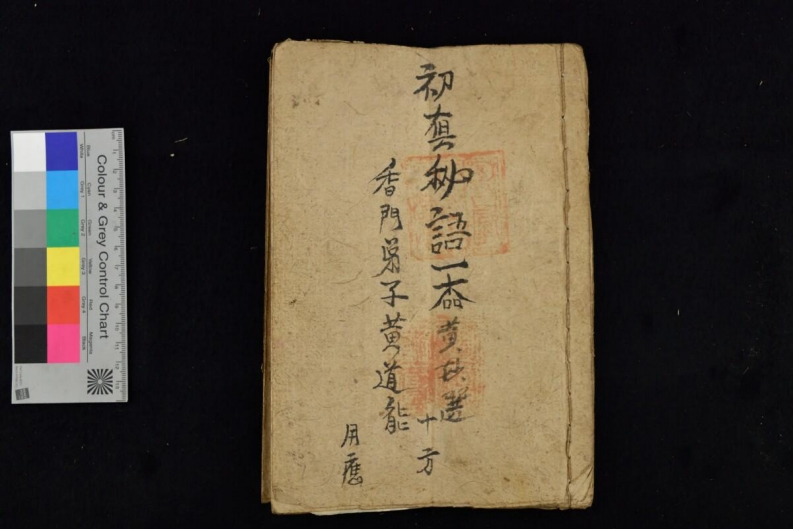 初真秘語一本
黄
十方
香門弟子黄道能
用應
Colour & Grey Control Chart
Blue
Cyan
Green
Yellow
Red
Magenta
White
Grey 1
Grey 2
Grey 3
Grey 4
Black